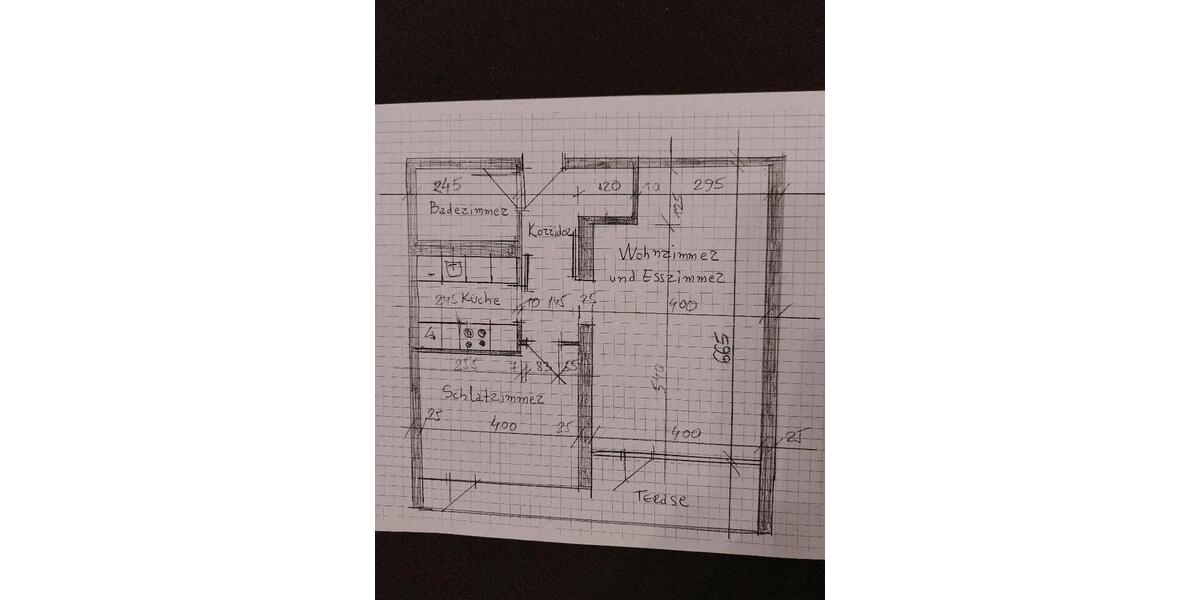 245
120
10
295
Badezimmer
125
Korridor
Wohnzimmer
und Esszimmer
245 Küche
10
145
25
400
665
255
7
82
55
540
Schlafzimmer
25
400
25
400
25
Terase